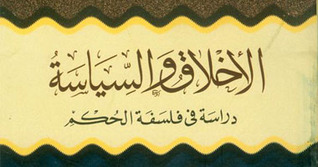 الأخلاق والسياسة
دراسة في فلسفة الحكم